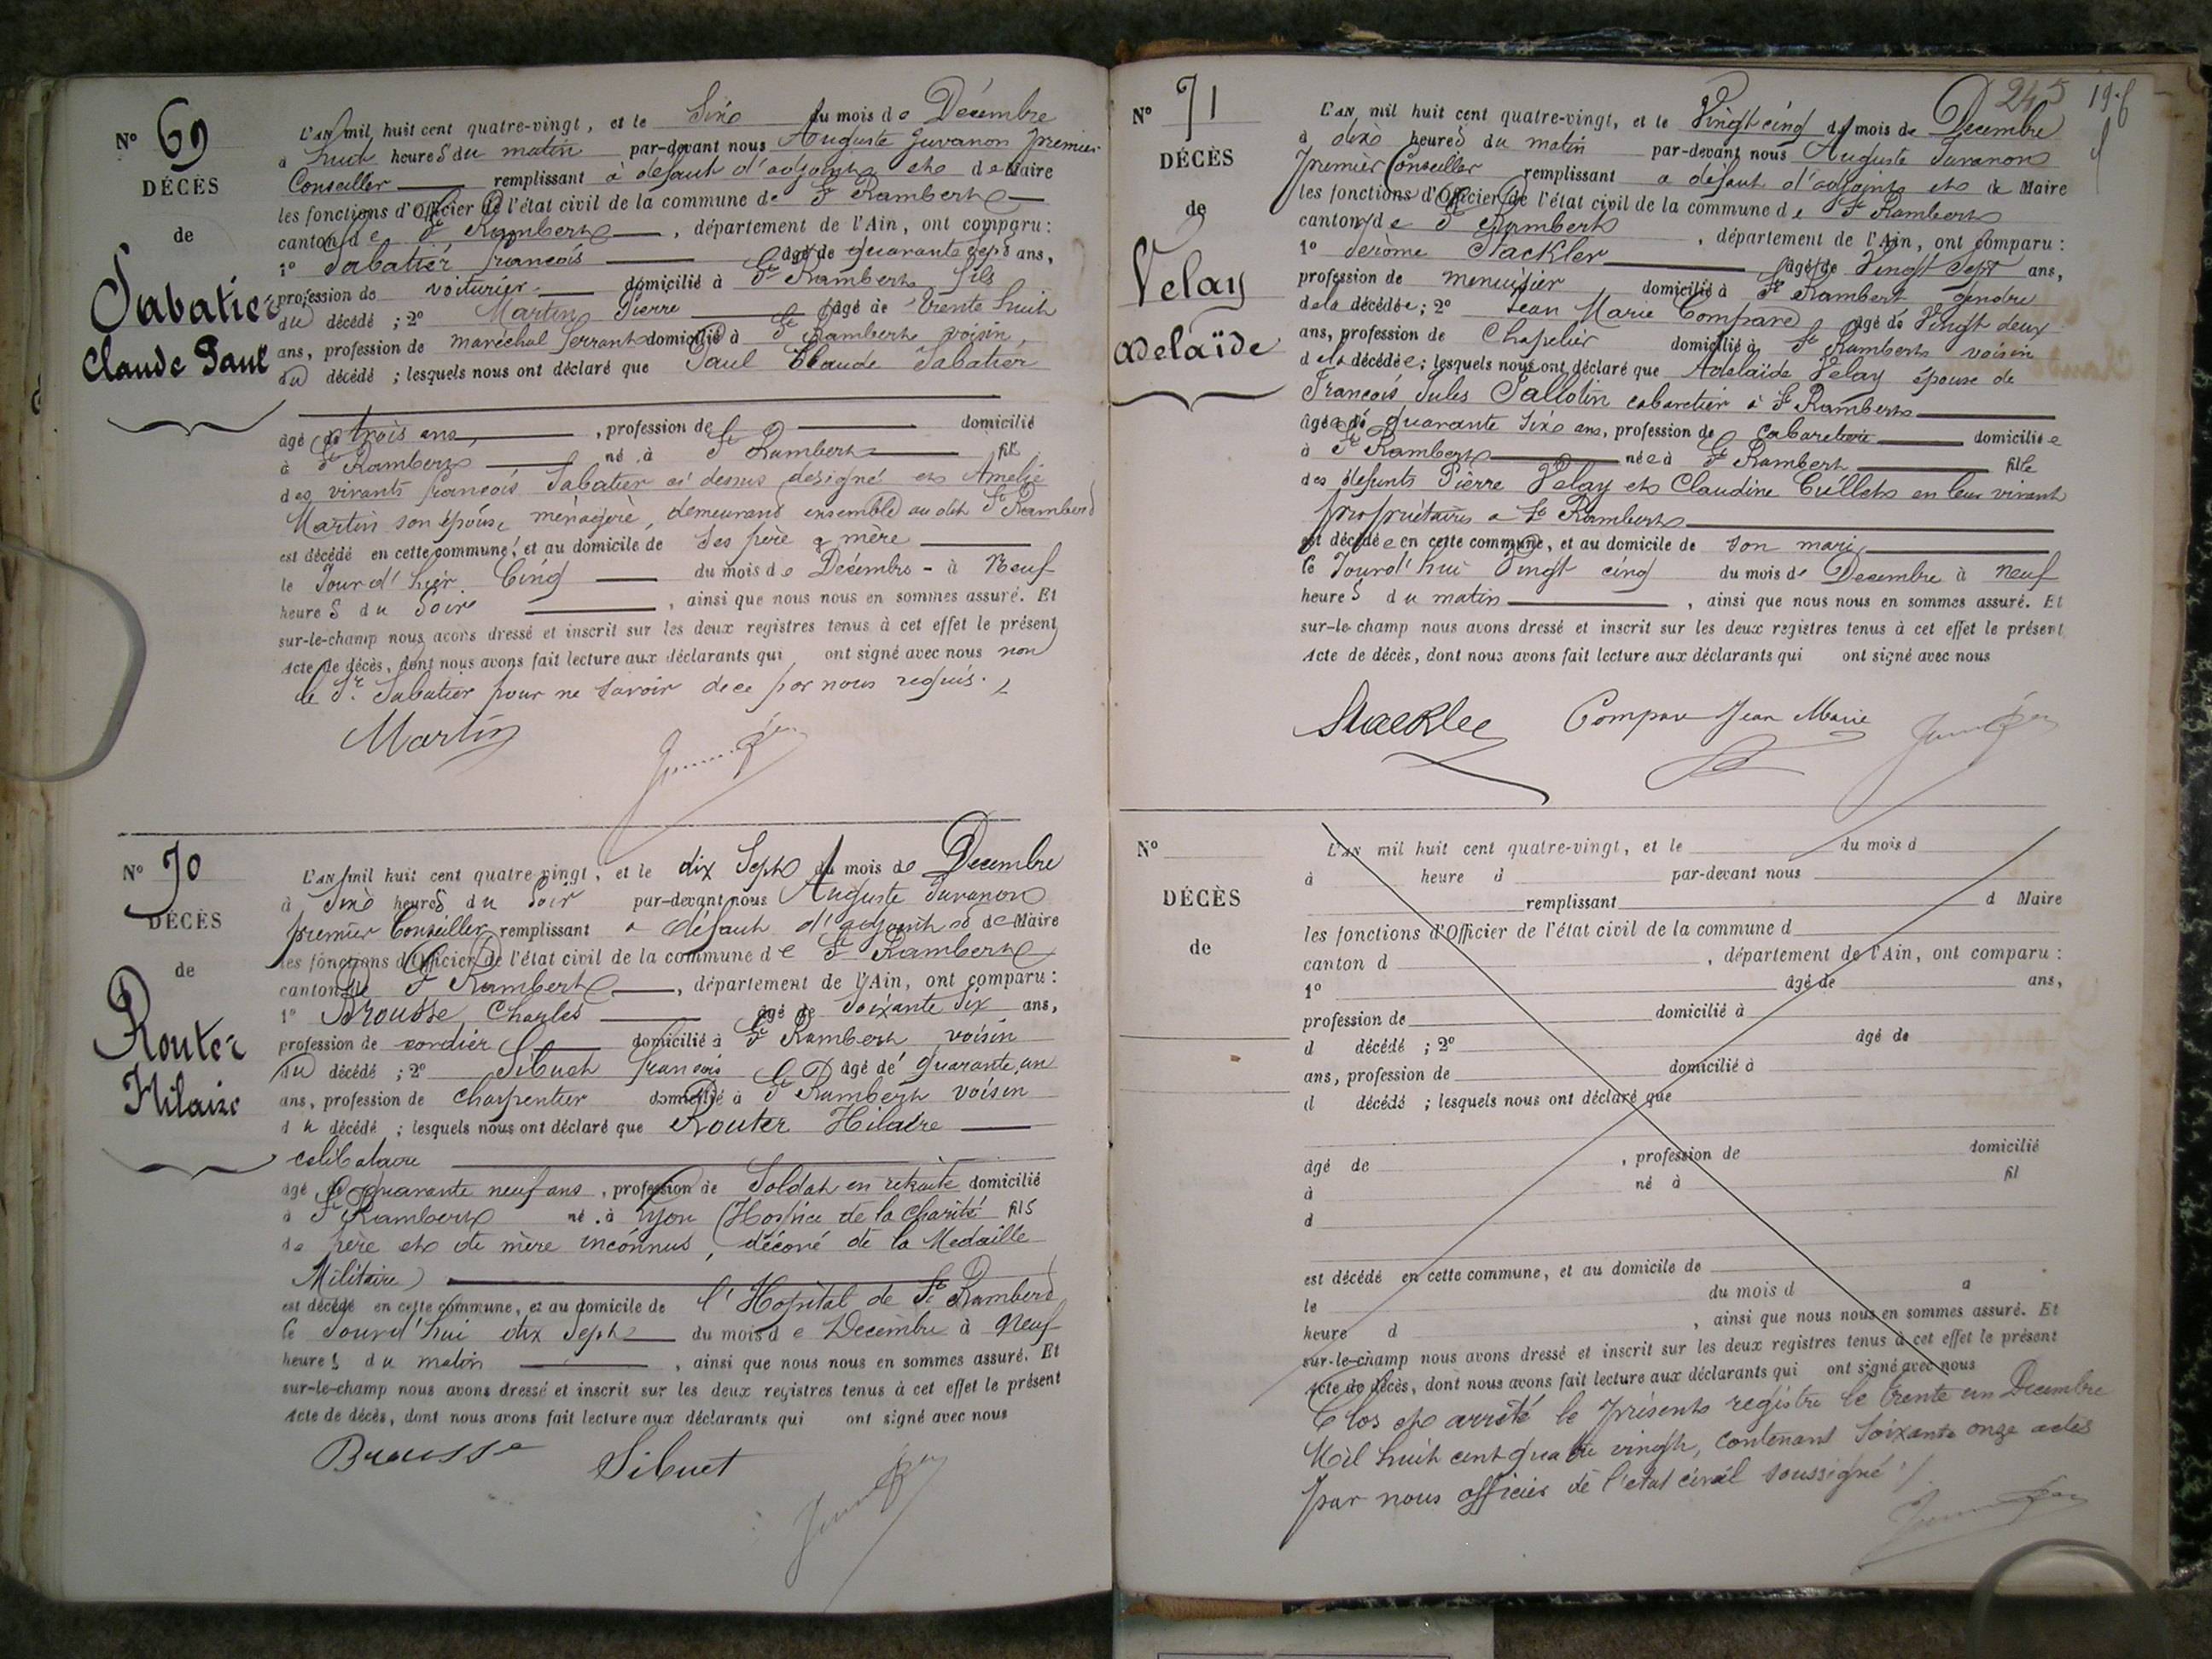 N° 69
DÉCÈS
de
Sabatier
Claude Paul
L'AN mil huit cent quatre-vingt, et le Sixe du mois de Décembre
à huit heures du matin par-devant nous Auguste Juvanon premier
Conseiller remplissant à défaut d'adjoint et de Maire
les fonctions d'Officier de l'état civil de la commune de St Rambert
canton de St Rambert, département de l'Ain, ont comparu :
1° Sabatier françois âgé de quarante sept ans,
profession de voiturier domicilié à St Rambert fils
du décédé ; 2° Martin Pierre âgé de trente huit
ans, profession de maréchal ferrant domicilié à St Rambert voisin,
du décédé ; lesquels nous ont déclaré que Paul Claude Sabatier
âgé de trois ans, profession de domicilié
à St Rambert né à St Rambert fil
des vivants françois Sabatier ci dessus désigné et Amelie
Martin son épouse ménagère, demeurant ensemble au dit St Rambert
est décédé en cette commune, et au domicile de ses père & mère
le Jourd'hier Cinq du mois de Décembre - à Neuf
heures du Soir, ainsi que nous nous en sommes assuré. Et
sur-le-champ nous avons dressé et inscrit sur les deux registres tenus à cet effet le présent
Acte de décès, dont nous avons fait lecture aux déclarants qui ont signé avec nous non
le Sr. Sabatier pour ne savoir de ce par nous requis.
Martin
N° 70
DÉCÈS
de
Router
Hilaire
L'AN mil huit cent quatre-vingt, et le dix Sept du mois de Décembre
à Sixe heures du Soir par-devant nous Auguste Juvanon
premier Conseiller remplissant a défaut d'adjoint et de Maire
les fonctions d'Officier de l'état civil de la commune de St Rambert
canton de St Rambert, département de l'Ain, ont comparu :
1° Brousse Charles âgé de Soixante Six ans,
profession de cordier domicilié à St Rambert voisin
du décédé ; 2° Sibuet françois âgé de quarante un
ans, profession de charpentier domicilié à St Rambert voisin
du décédé ; lesquels nous ont déclaré que Router Hilaire
celibataire
âgé de quarante neuf ans, profession de Soldat en retraite domicilié
à St Rambert né à Lyon (Hospice de la Charité fils
de père et de mère inconnus, décoré de la Medaille
Militaire)
est décédé en cette commune, et au domicile de l'Hopital de St Rambert
le Jourd'hui dix Sept du mois de Décembre à Neuf
heures du matin, ainsi que nous nous en sommes assuré. Et
sur-le-champ nous avons dressé et inscrit sur les deux registres tenus à cet effet le présent
Acte de décès, dont nous avons fait lecture aux déclarants qui ont signé avec nous
Brousse Sibuet
245
N° 71
DÉCÈS
de
Velay
adelaïde
L'AN mil huit cent quatre-vingt, et le Vingt cinq du mois de Décembre
à dixe heures du matin par-devant nous Auguste Juvanon
premier Conseiller remplissant a défaut d'adjoint et de Maire
les fonctions d'Officier de l'état civil de la commune de St Rambert
canton de St Rambert, département de l'Ain, ont comparu :
1° Jerôme Stackler âgé de Vingt Sept ans,
profession de menuisier domicilié à St Rambert gendre
de la décédée ; 2° Jean Marie Compard âgé de Vingt deux
ans, profession de Chapelier domicilié à St Rambert voisin
de la décédée ; lesquels nous ont déclaré que Adelaïde Velay épouse de
François Jules Pallotin cabaretier à St Rambert
âgée de quarante Sixe ans, profession de Cabaretière domiciliée
à St Rambert née à St Rambert fille
des défunts Pierre Velay et Claudine Cuillet en leur vivant
propriétaires a St Rambert
est décédée en cette commune, et au domicile de son mari
le Jourd'hui Vingt cinq du mois de Décembre à Neuf
heures du matin, ainsi que nous nous en sommes assuré. Et
sur-le-champ nous avons dressé et inscrit sur les deux registres tenus à cet effet le présent
Acte de décès, dont nous avons fait lecture aux déclarants qui ont signé avec nous
Stackler Compar Jean Marie
N°
DÉCÈS
de
L'AN mil huit cent quatre-vingt, et le du mois d
à heure d par-devant nous
remplissant d Maire
les fonctions d'Officier de l'état civil de la commune d
canton d , département de l'Ain, ont comparu :
1° âgé de ans,
profession de domicilié à
d décédé ; 2° âgé de
ans, profession de domicilié à
d décédé ; lesquels nous ont déclaré que
âgé de , profession de domicilié
à né à fil
d
est décédé en cette commune, et au domicile de
le du mois d a
heure d , ainsi que nous nous en sommes assuré. Et
sur-le-champ nous avons dressé et inscrit sur les deux registres tenus à cet effet le présent
Acte de décès, dont nous avons fait lecture aux déclarants qui ont signé avec nous
Clos et arrêté le présent registre le trente un Decembre
Mil huit cent quatre vingt, contenant Soixante onze actes
par nous officier de l'etat civil soussigné